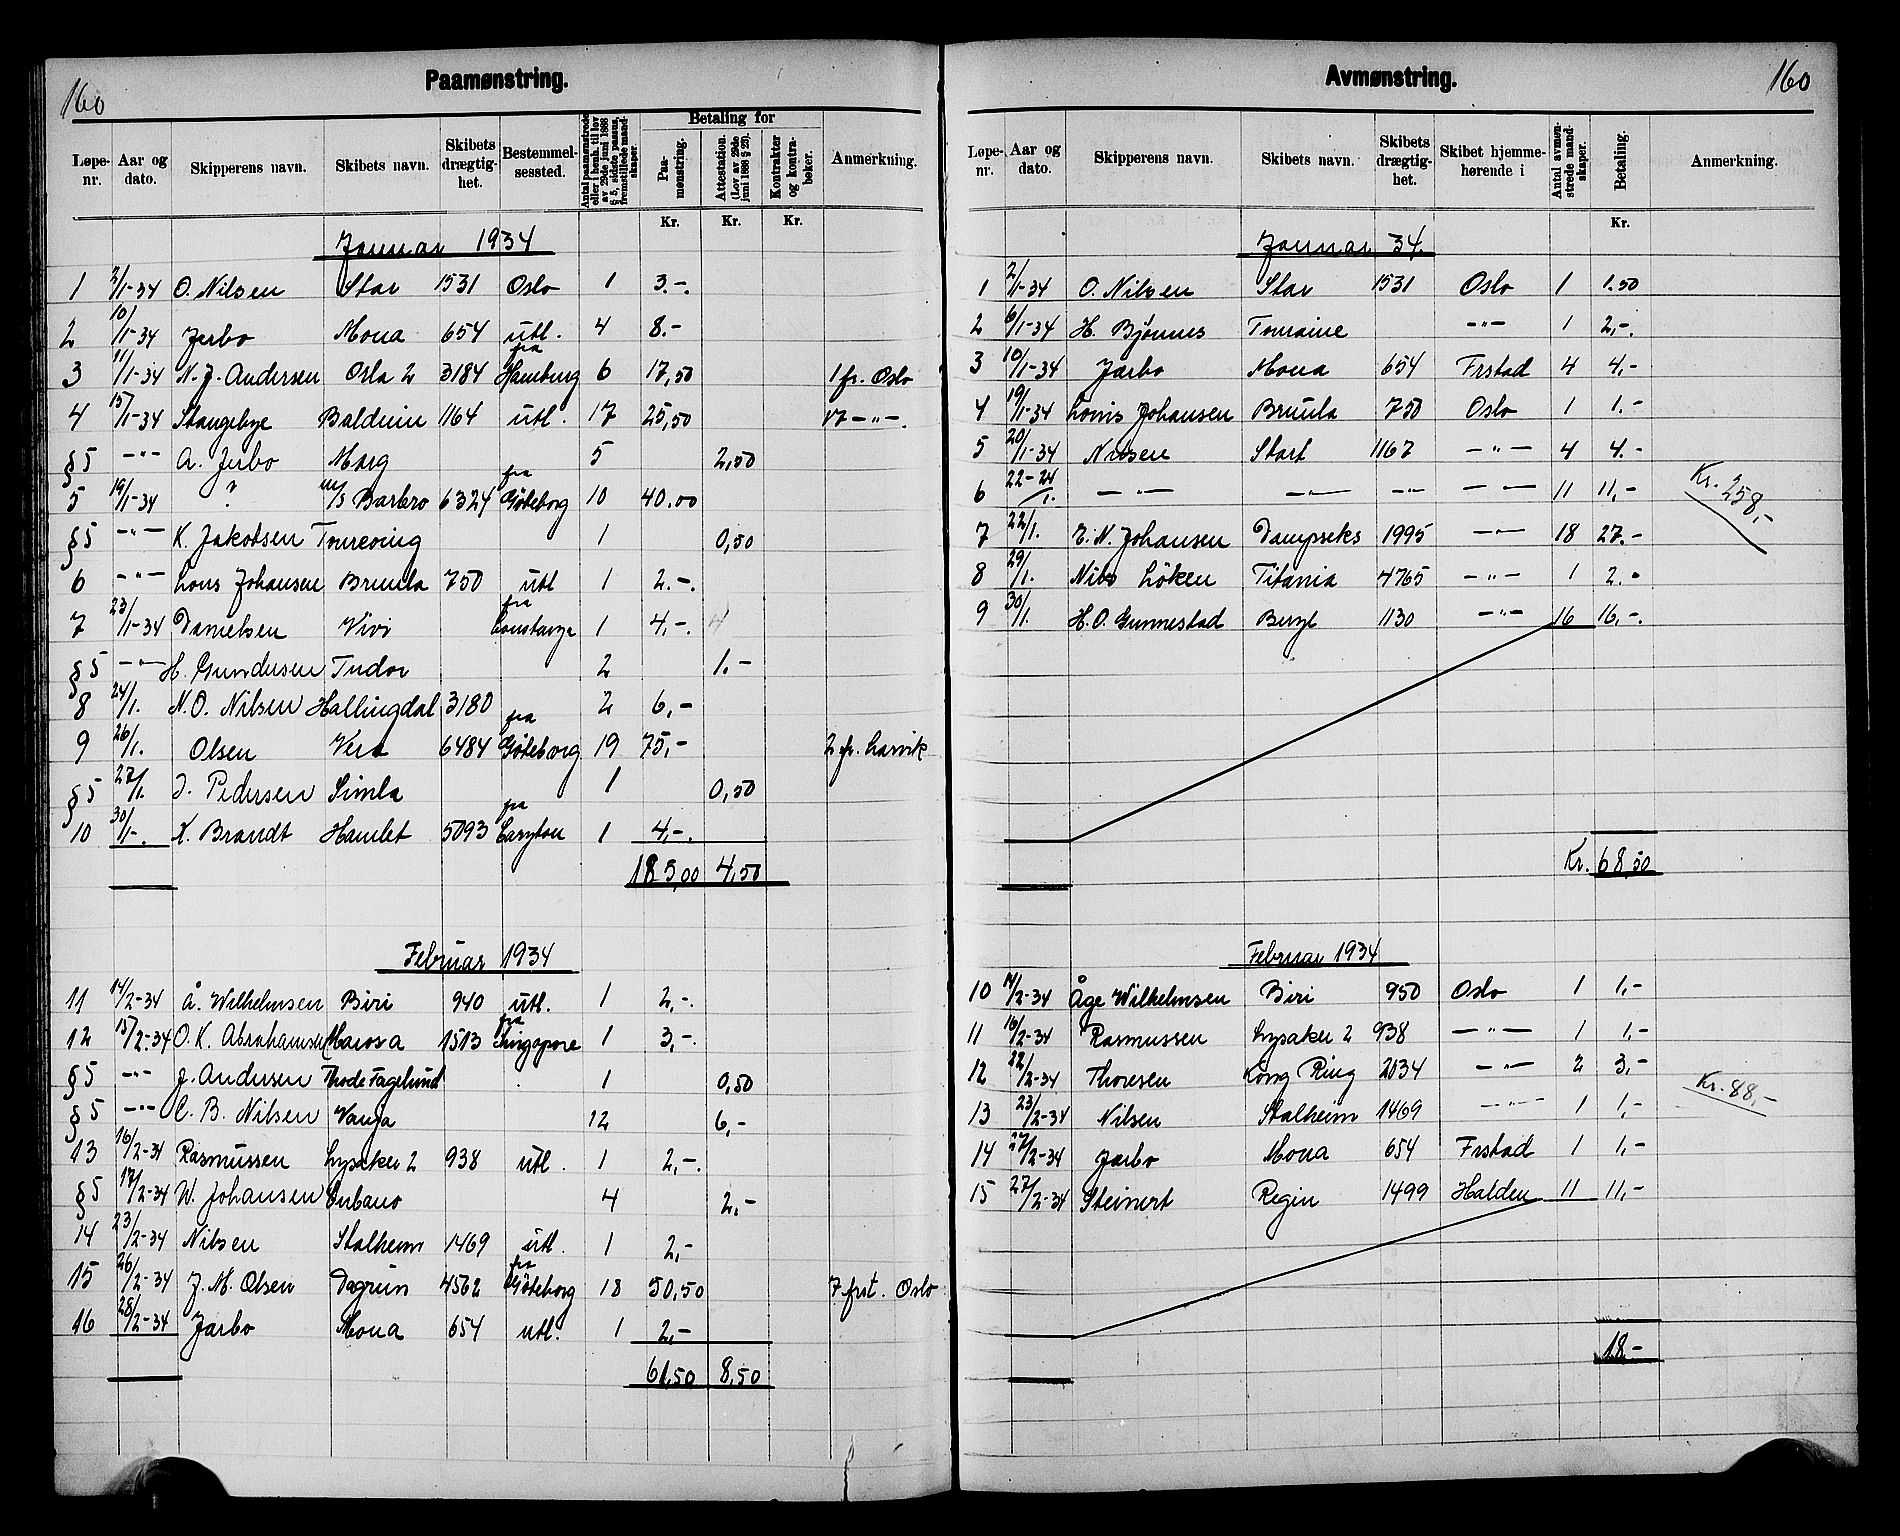 160
Paamønstring.
Løpe-nr. | Aar og dato. | Skipperens navn. | Skibets navn. | Skibets drægtig-het. | Bestemmel-sessted. | Antal paamønstrede eller i henh. til lov av 29de juni 1888 § 5, sidste passus, fremstillede mand-skaper. | Betaling for | Paa-mønstring. | Attestation. (Lov av 29de juni 1888 § 23). | Kontrakter og kontra-bøker. | Anmerkning.
Kr. Kr. Kr.
Januar 1934
1 2/1-34 O. Nilsen Star 1531 Oslo 1 3.-.
2 10/1-34 Jerbo Mona 654 utl. 4 8.-
3 11/1-34 N. J. Andersen Osla 2 3184 fra Hamburg 6 17,50 1 fr. Oslo
4 15/1-34 Stangebye Balduin 1164 utl. 17 25,50 17 -"-.
§5 -"- A. Jerbo Marg 5 2,50
5 19/1-34 ? m/s Barbro 6324 fra Göteborg 10 40.00
§5 -"- K. Jakobsen 1 0,50
6 -"- Louis Johansen Bruula 750 utl 1 2.-.
7 23/1-34 Danielsen Vivi fra 1 4,-.
§5 -"- H. Gundersen Tudor 2 1.-
8 24/1. N. O. Nilsen Hallingdal 3180 2 6,-
9 26/1. Olsen Vera 6484 fra Göteborg 19 75,- 2 fr. Larvik
§5 27/1. J. Pedersen Simla 1 0,50
10 30/1-. K. Brandt Hamlet 5093 fra 1 4,-.
185,00 4,50
Februar 1934
11 14/2-34 Å. Wilhelmsen Biri 940 utl. 1 2,-.
12 15/2-34 O. K. Abrahamsen Marosa 1513 fra Singapore 1 3,-.
§5 -"- J. Andersen Thode Fagelund 1 0,50
§5 -"- C. B. Nilsen Vanja 12 6,-
13 16/2-34 Rasmussen Lysaker 2 938 utl. 1 2,-.
§5 17/2-34 W. Johansen Urbano 4 2,-
14 23/2-34 Nilsen Stalheim 1469 utl. 1 2,-
15 26/2-34 J. M. Olsen Dagrun 4562 fra Göteborg 18 50,50 7 frst. Oslo
16 28/2-34 Jarbo Mona 654 utl. 1 2,-
61,50 8,50
160
Avmønstring.
Løpe-nr. | Aar og dato. | Skipperens navn. | Skibets navn. | Skibets drægtig-het. | Skibet hjemme-hørende i | Antal avmøn-strede mand-skaper. | Betaling. | Anmerkning.
Kr.
Januar 34.
1 2/1-34 O. Nilsen Star 1531 Oslo 1 1.50
2 6/1-34 H. Bjønnes Touraine -"- 1 2,-.
3 10/1-34 Jarbo Mona 654 Frstad 4 4,-
4 19/1-34 Louis Johansen Bruula 750 Oslo 1 1.-
5 20/1-34 Nilsen Start 1167 -"- 4 4.-
6 22-24/1. -"- -"- -"- -"- 11 11,-
Kr. 258,-
7 22/1. E. N. Johansen Dampseks 1995 -"- 18 27.-
8 29/1. Nils Löken Titania 4765 -"- 1 2.-
9 30/1. H. O. Gunnestad Beryl 1130 -"- 16 16,-.
Kr. 68,50
Februar 1934
10 14/2-34 Åge Wilhelmsen Biri 950 Oslo 1 1,-
11 16/2-34 Rasmussen Lysaker 2 938 -"- 1 1,-
12 22/2-34 Thoresen Kong Ring 2034 -"- 2 3,-
Kr. 88,-
13 23/2-34 Nilsen Stalheim 1469 -"- 1 1,-
14 27/2-34 Jarbo Mona 654 Frstad 1 1,-
15 27/2-34 Steinert Regin 1499 Halden 11 11,-
18.-